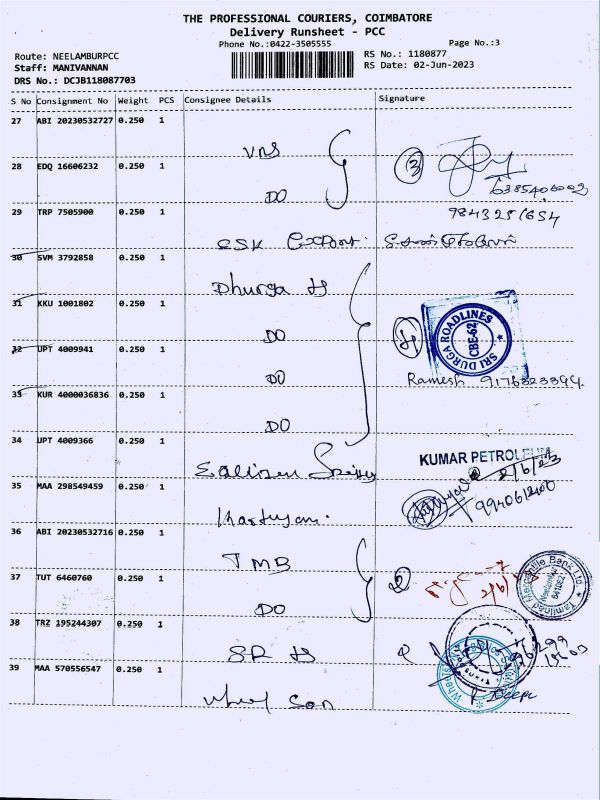 THE PROFESSIONAL COURIERS, COIMBATORE
Delivery Runsheet - PCC
Phone No.:0422-3505555
Page No.:3
Route: NEELAMBURPCC
RS No.: 1180877
Staff: MANIVANNAN
RS Date: 02-Jun-2023
DRS No.: DCJB118087703
S No Consignment No Weight PCS Consignee Details Signature
27 ABI 20230532727 0.250 1
VNS
28 EDQ 16606232 0.250 1
3
DO
29 TRP 7505900 0.250 1
CSK Export
30 SVM 3792858 0.250 1
Dhurga
31 KKU 1001802 0.250 1
DO
SRI DURGA ROADLINES
CBE-62
32 UPT 4009941 0.250 1
4
DO
Ramesh
33 KUR 4000036836 0.250 1
DO
34 UPT 4009366 0.250 1
KUMAR PETROLEUM
2/6/23
35 MAA 298549459 0.250 1
36 ABI 20230532716 0.250 1
TMB
Tamilnad Mercantile Bank Ltd.
37 TUT 6460760 0.250 1
2
DO
38 TRZ 195244307 0.250 1
SR
39 MAA 570556547 0.250 1
Son